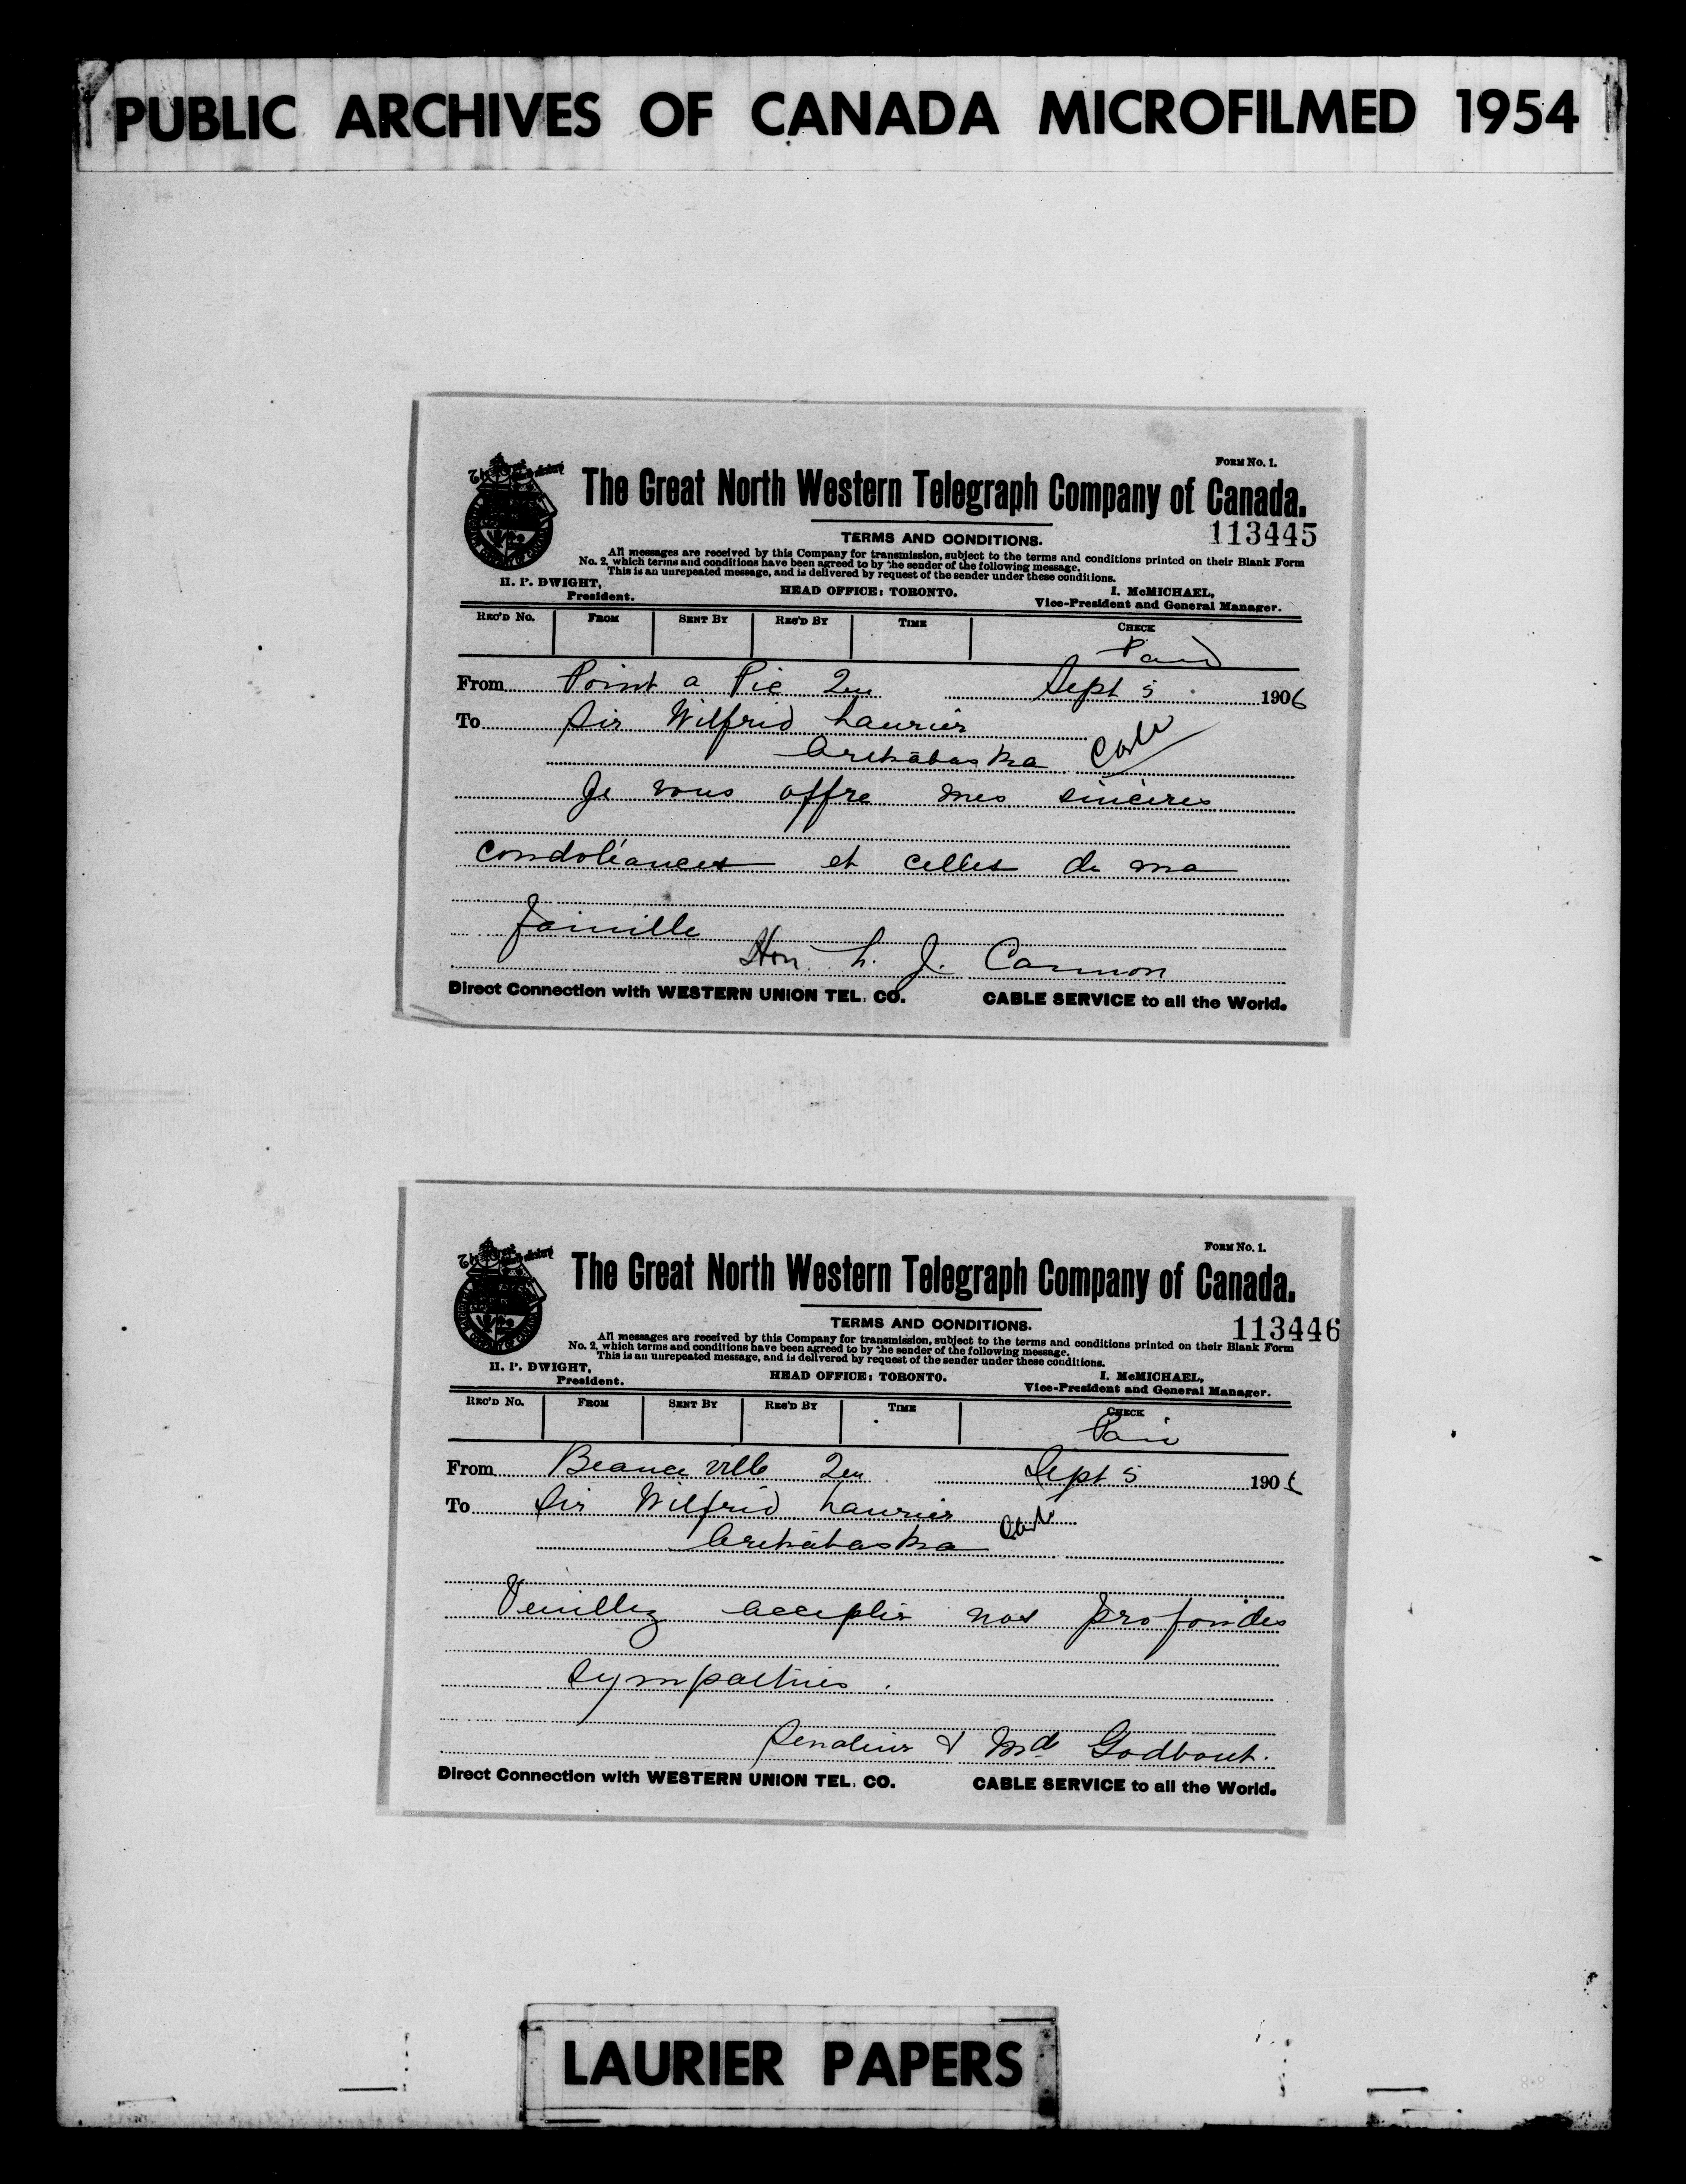 PUBLIC ARCHIVES OF CANADA MICROFILMED 1954
FORM No. 1.
The Great North Western Telegraph Company of Canada.
113445
TERMS AND CONDITIONS.
All messages are received by this Company for transmission, subject to the terms and conditions printed on their Blank Form
No. 2, which terms and conditions have been agreed to by the sender of the following message.
This is an unrepeated message, and is delivered by request of the sender under these conditions.
H. P. DWIGHT, President.
HEAD OFFICE: TORONTO.
I. McMICHAEL, Vice-President and General Manager.
REC'D No. FROM SENT BY REC'D BY TIME CHECK
Paid
From Point a Pic Que Sept 5 1906
To Sir Wilfrid Laurier
Arthabaska
Je vous offre mes sincères
condoléances et celles de ma
famille
Hon L. J. Cannon
Direct Connection with WESTERN UNION TEL. CO. CABLE SERVICE to all the World.
FORM No. 1.
The Great North Western Telegraph Company of Canada.
113446
TERMS AND CONDITIONS.
All messages are received by this Company for transmission, subject to the terms and conditions printed on their Blank Form
No. 2, which terms and conditions have been agreed to by the sender of the following message.
This is an unrepeated message, and is delivered by request of the sender under these conditions.
H. P. DWIGHT, President.
HEAD OFFICE: TORONTO.
I. McMICHAEL, Vice-President and General Manager.
REC'D No. FROM SENT BY REC'D BY TIME CHECK
Paid
From Beauce ville Que Sept 5 1906
To Sir Wilfrid Laurier
Arthabaska
Veuillez accepter nos profondes
sympathies.
Senateur & Md Godbout.
Direct Connection with WESTERN UNION TEL. CO. CABLE SERVICE to all the World.
LAURIER PAPERS